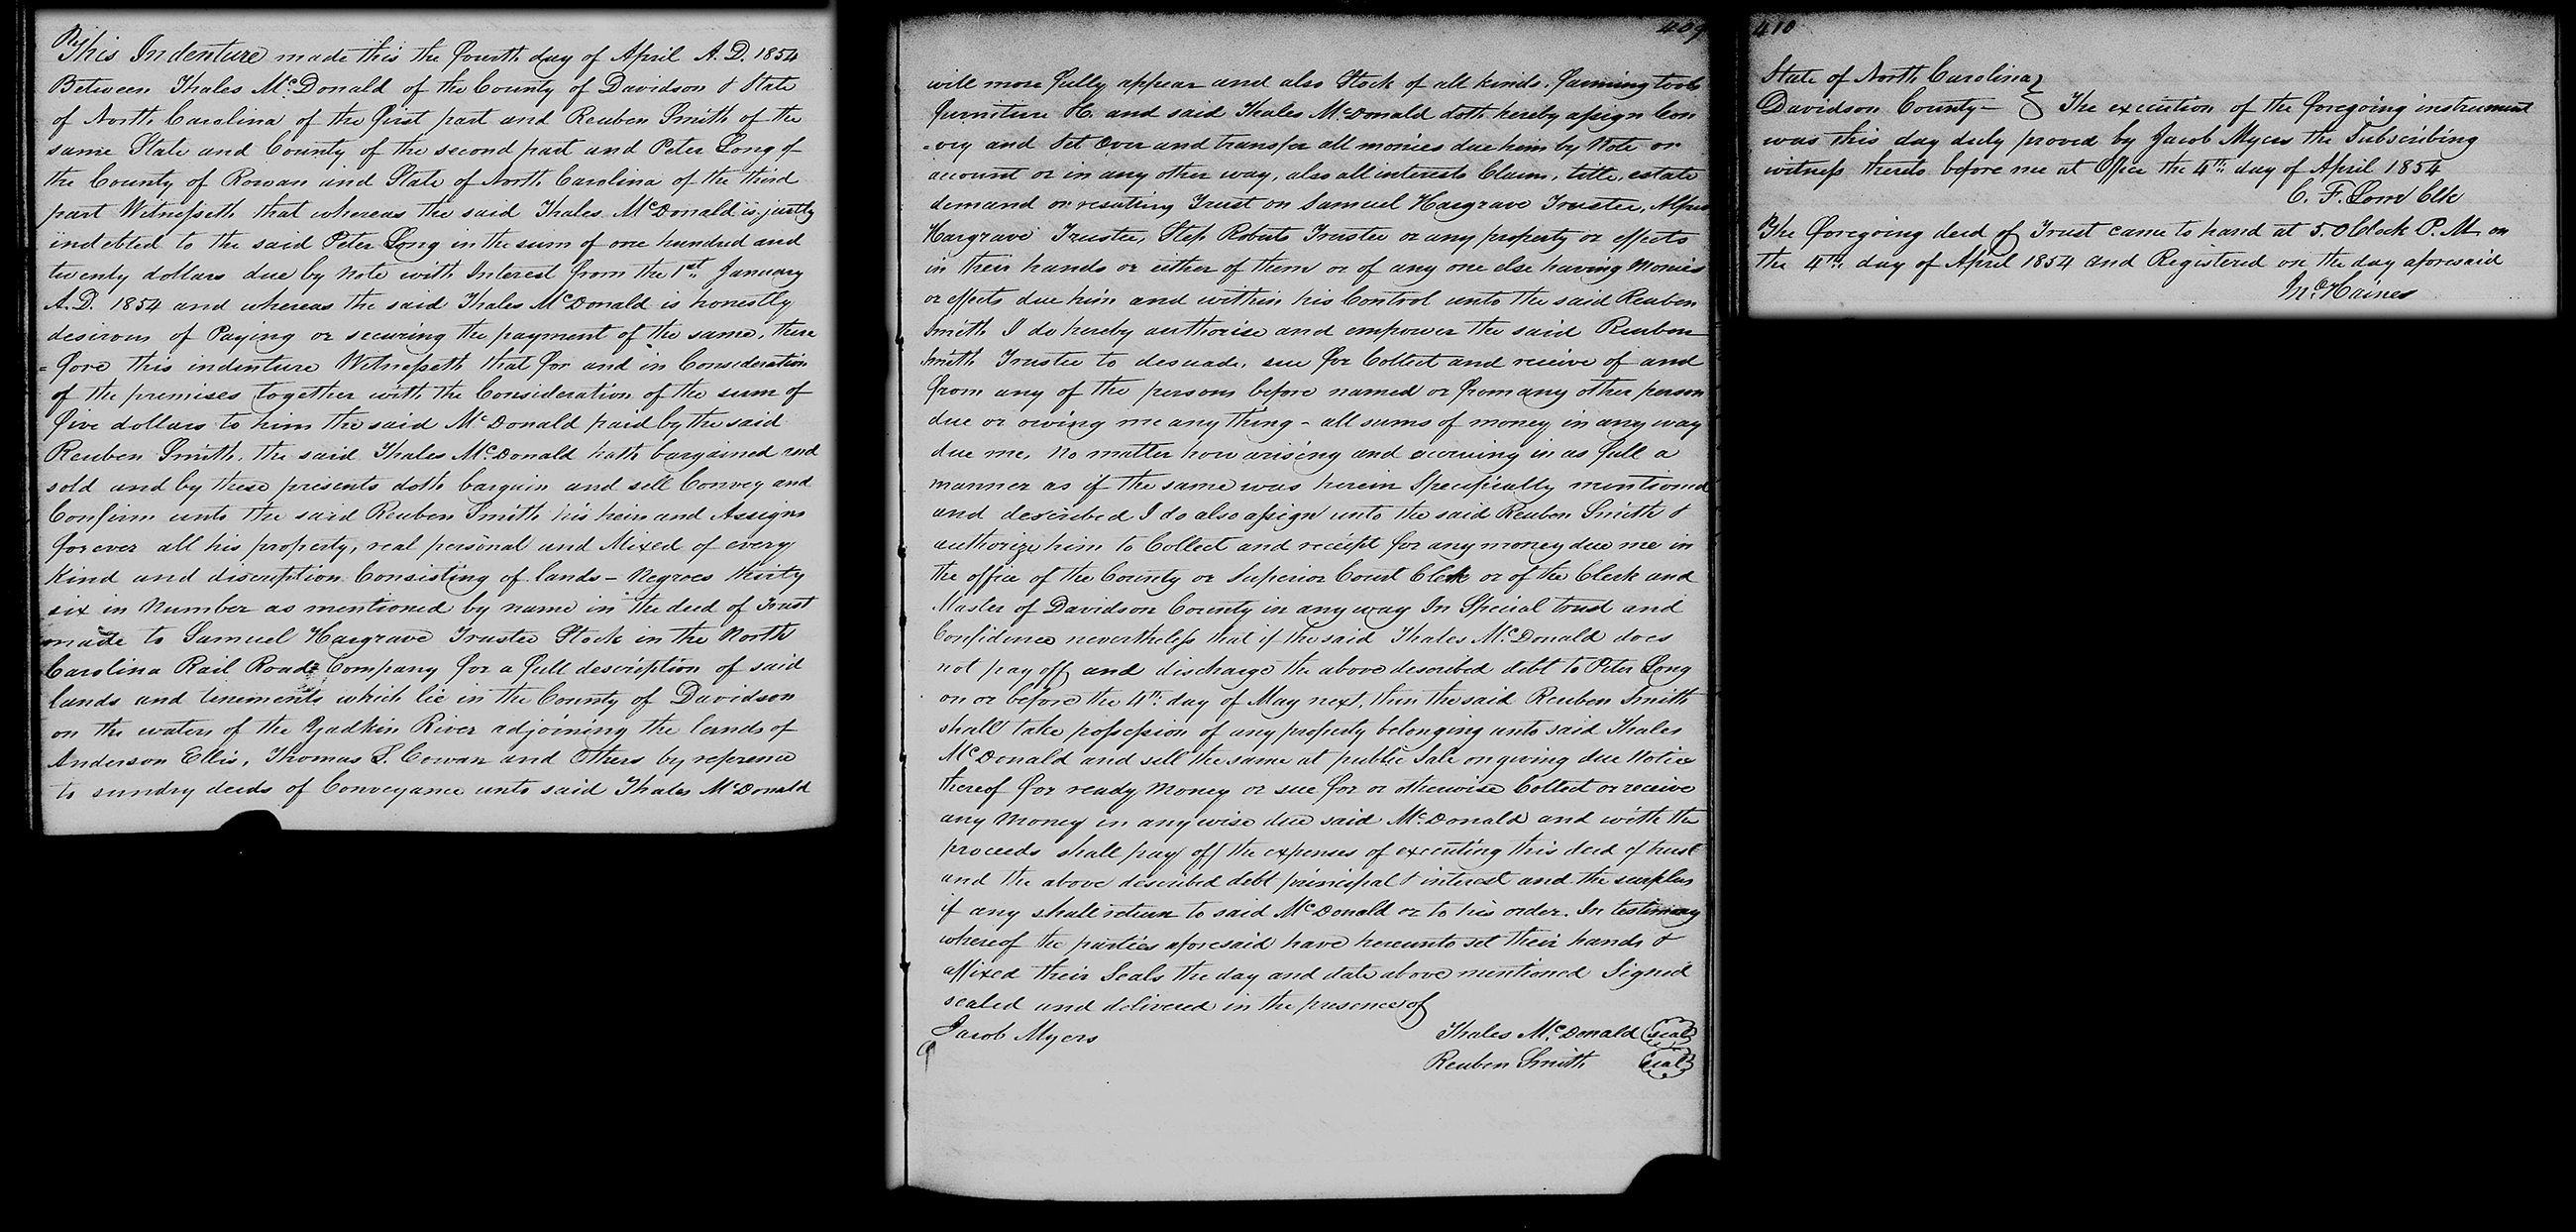 This Indenture made this the Fourth day of April A.D. 1854
Between Thales McDonald of the County of Davidson & State
of North Carolina of the first part and Reuben Smith of the
same State and County of the second part and Peter Long of
the County of Rowan and State of North Carolina of the third
part Witnesseth that whereas the said Thales McDonald is justly
indebted to the said Peter Long in the sum of one hundred and
twenty dollars due by note with Interest from the 1st January
A.D. 1854 and whereas the said Thales McDonald is honestly
desirous of Paying or securing the payment of the same, there
=fore this indenture Witnesseth that for and in Consideration
of the premises together with the Consideration of the sum of
five dollars to him the said McDonald paid by the said
Reuben Smith, the said Thales McDonald hath bargained and
sold and by these presents doth bargain and sell Convey and
Confirm unto the said Reuben Smith his heirs and Assigns
forever all his property, real personal and Mixed of every
Kind and discription Consisting of lands - Negroes thirty
six in Number as mentioned by name in the deed of Trust
made to Samuel Hargrave Trustee Stock in the North
Carolina Rail Road Company for a full description of said
lands and tenements which lie in the County of Davidson
on the waters of the Yadkin River adjoining the lands of
Anderson Ellis, Thomas S. Cowan and Others by reference
to sundry deeds of Conveyance unto said Thales McDonald
409
will more fully appear and also Stock of all kinds, farming tools
furniture &c. and said Thales McDonald doth hereby assign Con
=vey and Set Over and transfer all monies due him by Note or
account or in any other way, also all interests Claim, title, estate
demand or resulting Trust on Samuel Hargrave Trustee, Alfred
Hargrave Trustee, Step Roberts Trustee or any property or effects
in their hands or either of them or of any one else having Monies
or effects due him and within his Control unto the said Reuben
Smith I do hereby authorise and empower the said Reuben
Smith Trustee to , sue for Collect and receive of and
from any of the persons before named or from any other person
due or owing me any thing - all sums of money in any way
due me, No matter how arising and accruing in as full a
manner as if the same was herein Specifically mentioned
and described I do also assign unto the said Reuben Smith &
authorize him to Collect and receipt for any money due me in
the office of the County or Superior Court Clerk or of the Clerk and
Master of Davidson County in any way In Special trust and
Confidence nevertheless that if the said Thales McDonald does
not pay off and discharge the above described debt to Peter Long
on or before the 4th day of May next, then the said Reuben Smith
shall take possession of any property belonging unto said Thales
McDonald and sell the same at public Sale on giving due Notice
thereof for ready Money or sue for or otherwise Collect or receive
any Money in any wise due said McDonald and with the
proceeds shall pay off the expenses of executing this deed of trust
and the above described debt principal & interest and the surplus
if any shall return to said McDonald or to his order. In testimony
whereof the parties aforesaid have hereunto set their hands &
affixed their Seals the day and date above mentioned Signed
sealed and delivered in the presence of
Jacob Myers Thales McDonald seal
Reuben Smith seal
410
State of North Carolina
Davidson County - The execution of the foregoing instrument
was this day duly proved by Jacob Myers the Subscribing
witness thereto before me at Office the 4th day of April 1854
C. F. Clk
The foregoing deed of Trust came to hand at 5. O Clock P.M. on
the 4th day of April 1854 and Registered on the day aforesaid
Jno Haines